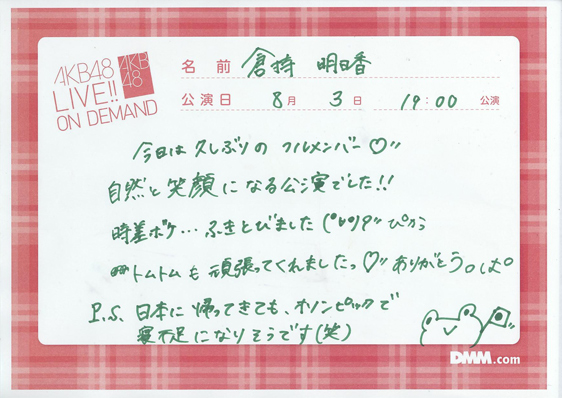 AKB48
LIVE!!
ON DEMAND
AKB
48
名前 倉持 明日香
公演日 8月 3日 19:00 公演
今日は久しぶりのフルメンバー♡〃
自然と笑顔になる公演でした!!
時差ボケ…ふきとびました
トムトムも頑張ってくれましたっ♡〃ありがとう。
P.S. 日本に帰ってきても、オリンピックで
寝不足になりそうです(笑)
DMM.com